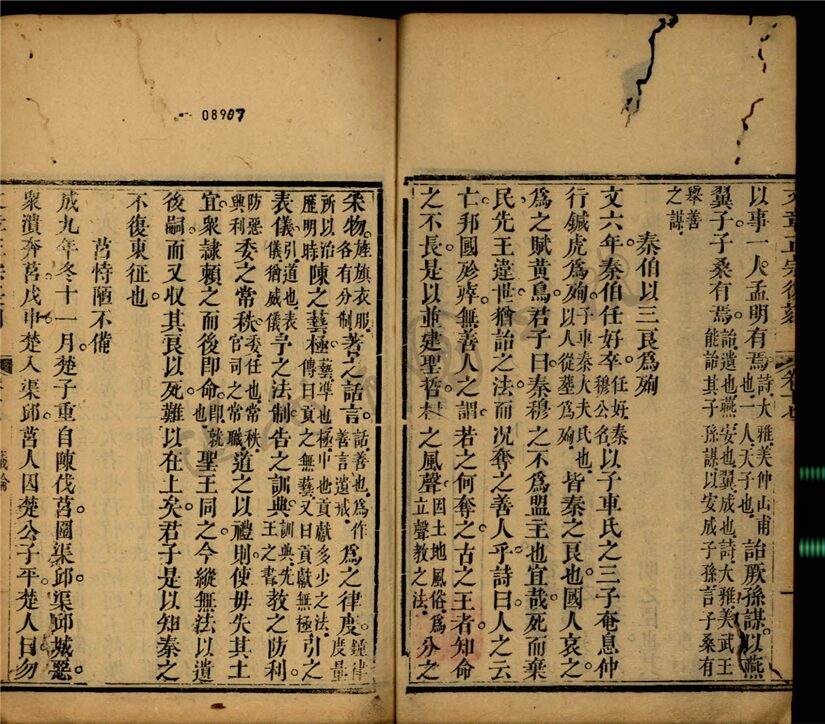 文章正宗復刻
以事一人孟明有焉詩大雅美仲山甫也一人天子也詒厥孫謀以燕
翼子子桑有焉詒遺也燕安也翼成也詩大雅美武王能詒其子孫謀以安成子孫言子桑有
舉善之謀
秦伯以三良為殉
文六年秦伯任好卒任好秦穆公名以子車氏之三子奄息仲
行鍼虎為殉子車秦大夫氏也以人從葬為殉皆秦之良也國人哀之
為之賦黃鳥君子曰秦穆之不為盟主也宜哉死而棄
民先王違世猶詒之法而况奪之善人乎詩曰人之云
亡邦國殄瘁無善人之謂若之何奪之古之王者知命
之不長是以並建聖哲樹之風聲因土地風俗為立聲教之法為分之
08907
采物旌旗衣服各有分制著之話言話善也為作善言遺戒為之律度鐘律度量
所以治歷明時陳之藝極藝準也極中也貢獻多少之法傳曰貢之無藝又曰貢獻無極引之
表儀引道也表儀猶威儀予之法制告之訓典訓典先王之書教之防利
防惡興利委之常秩委任也常秩官司之常職道之以禮則使毋失其土
宜衆隸賴之而後即命即就也聖王同之今縱無法以遺
後嗣而又収其良以死難以在上矣君子是以知秦之
不復東征也
莒恃陋不備
成九年冬十一月楚子重自陳伐莒圍渠邱渠邱城惡
衆潰奔莒戊申楚入渠邱莒人囚楚公子平楚人曰勿